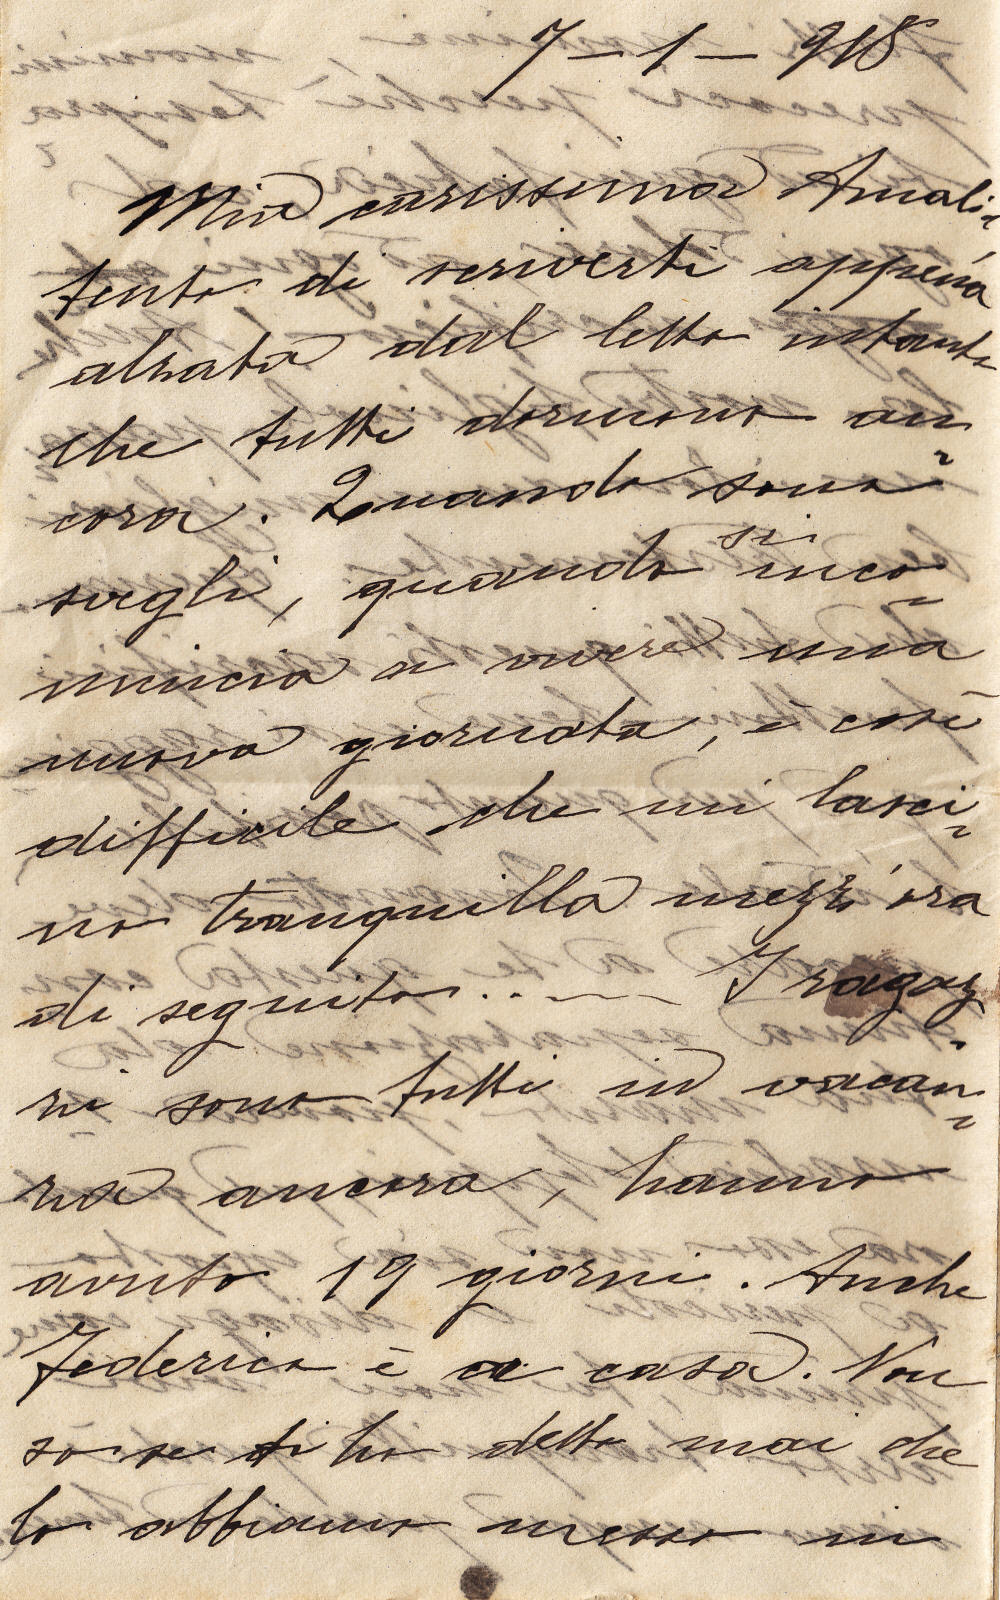 7 - 1 - 918
Mia carissima Amalia
tento di scriverti appena
alzata dal letto intanto
che tutti dormono an
cora. Quando sono
svegli, quando si inco-
mincia a vivere una
nuova giornata, è così
difficile che mi lasci-
no tranquilla mezz'ora
di seguito..... I ragaz-
zi sono tutti in vacan-
za ancora, hanno
avuto 19 giorni. Anche
Federico è a casa. Non
so se ti ho detto mai che
lo abbiamo messo in